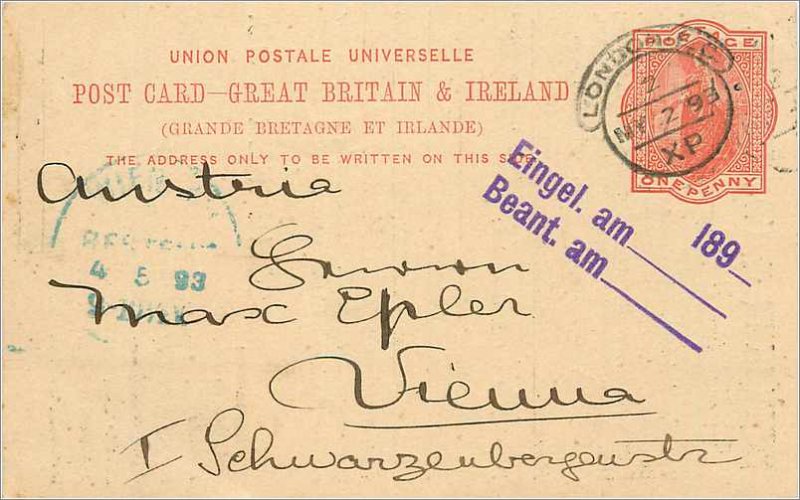 UNION POSTALE UNIVERSELLE
POST CARD—GREAT BRITAIN & IRELAND
(GRANDE BRETAGNE ET IRLANDE)
THE ADDRESS ONLY TO BE WRITTEN ON THIS SIDE
POSTAGE
ONE PENNY
LONDON
2
MY 2 93
XP
Eingel. am 189
Beant. am
Austria
4 5 93
Herrn
Max Epler
Vienna
I Schwarzenbergenstr